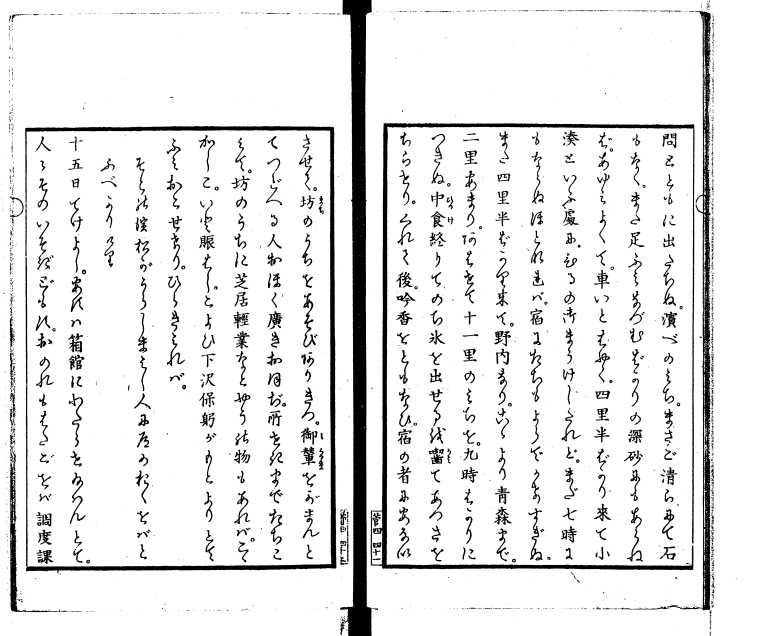 問とともに出たちぬ。濱べのみち。まさご清らにて石
もなく。また足ふみなづむばかりの深砂にもあらね
ば。あゆみよくて。車いとはやく。四里半ばかり来て小
湊といふ處に。ひるの御まうけしたれど。まだ七時に
もならぬほどなれば。宿にたちもよらでうちすぎぬ。
また四里半ばかり来て。野内なり。こゝより青森まで。
二里あまり。あはせて十一里のみちを。九時ばかりに
つきぬ。中食終りてのち氷を出せるを嚙てあつさを
ちらせり。くれて後。吟香をともなひ。宿の者にあない
させて。坊のうちをあそびありきつ。御輦ををがまんと
てつどへる人おほく廣きおほぢ。所せきまでたちこ
みて。坊のうちに芝居輕業などやうの物もあれば。こゝ
かしこ。いと賑はし。こよひ下沢保躬がもとよりとて
ふみおこせたり。ひらきみれば。
十五日てけよし。あすは箱館にわたらせたまはんとて。
人々そのいそぎどもす。おのれもまたこをば調度課
菅四 四十一